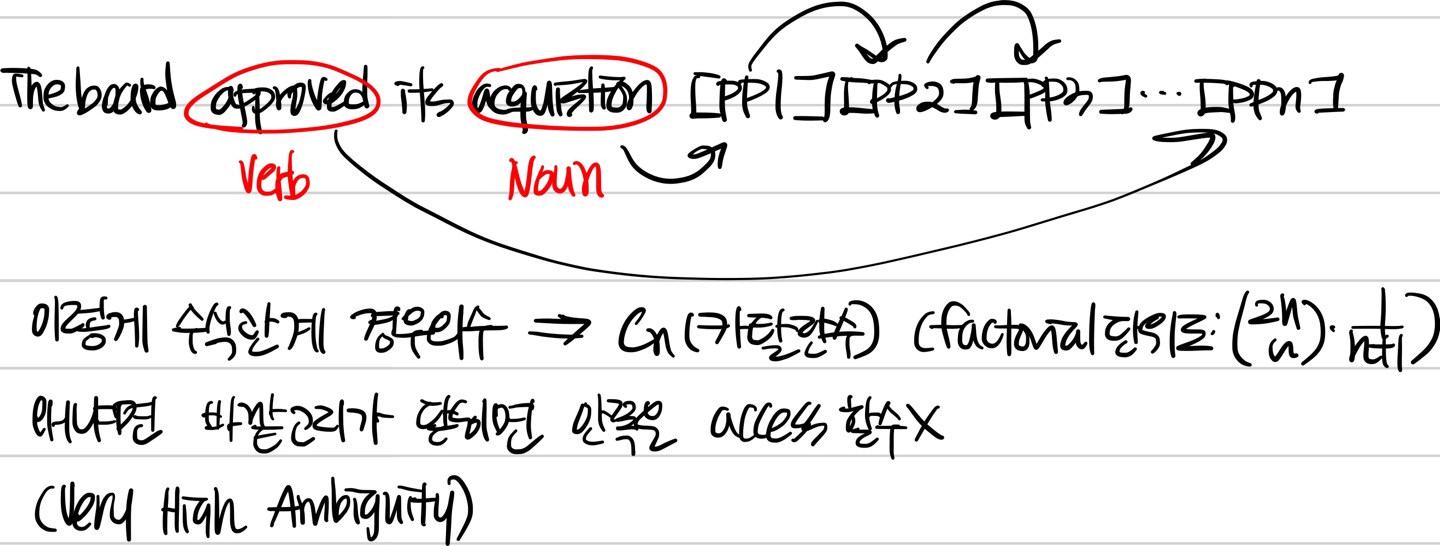 The board approved its acquistion [PP1] [PP2] [PP3] ... [PPn]
Verb Noun
이렇게 수식관계 경우의수 ⇒ Cn (카탈란수) (factorial 단위로: (2n n) · 1/n+1)
왜냐면 바깥고리가 닫히면 안쪽은 access 할수 X
(Very High Ambiguity)